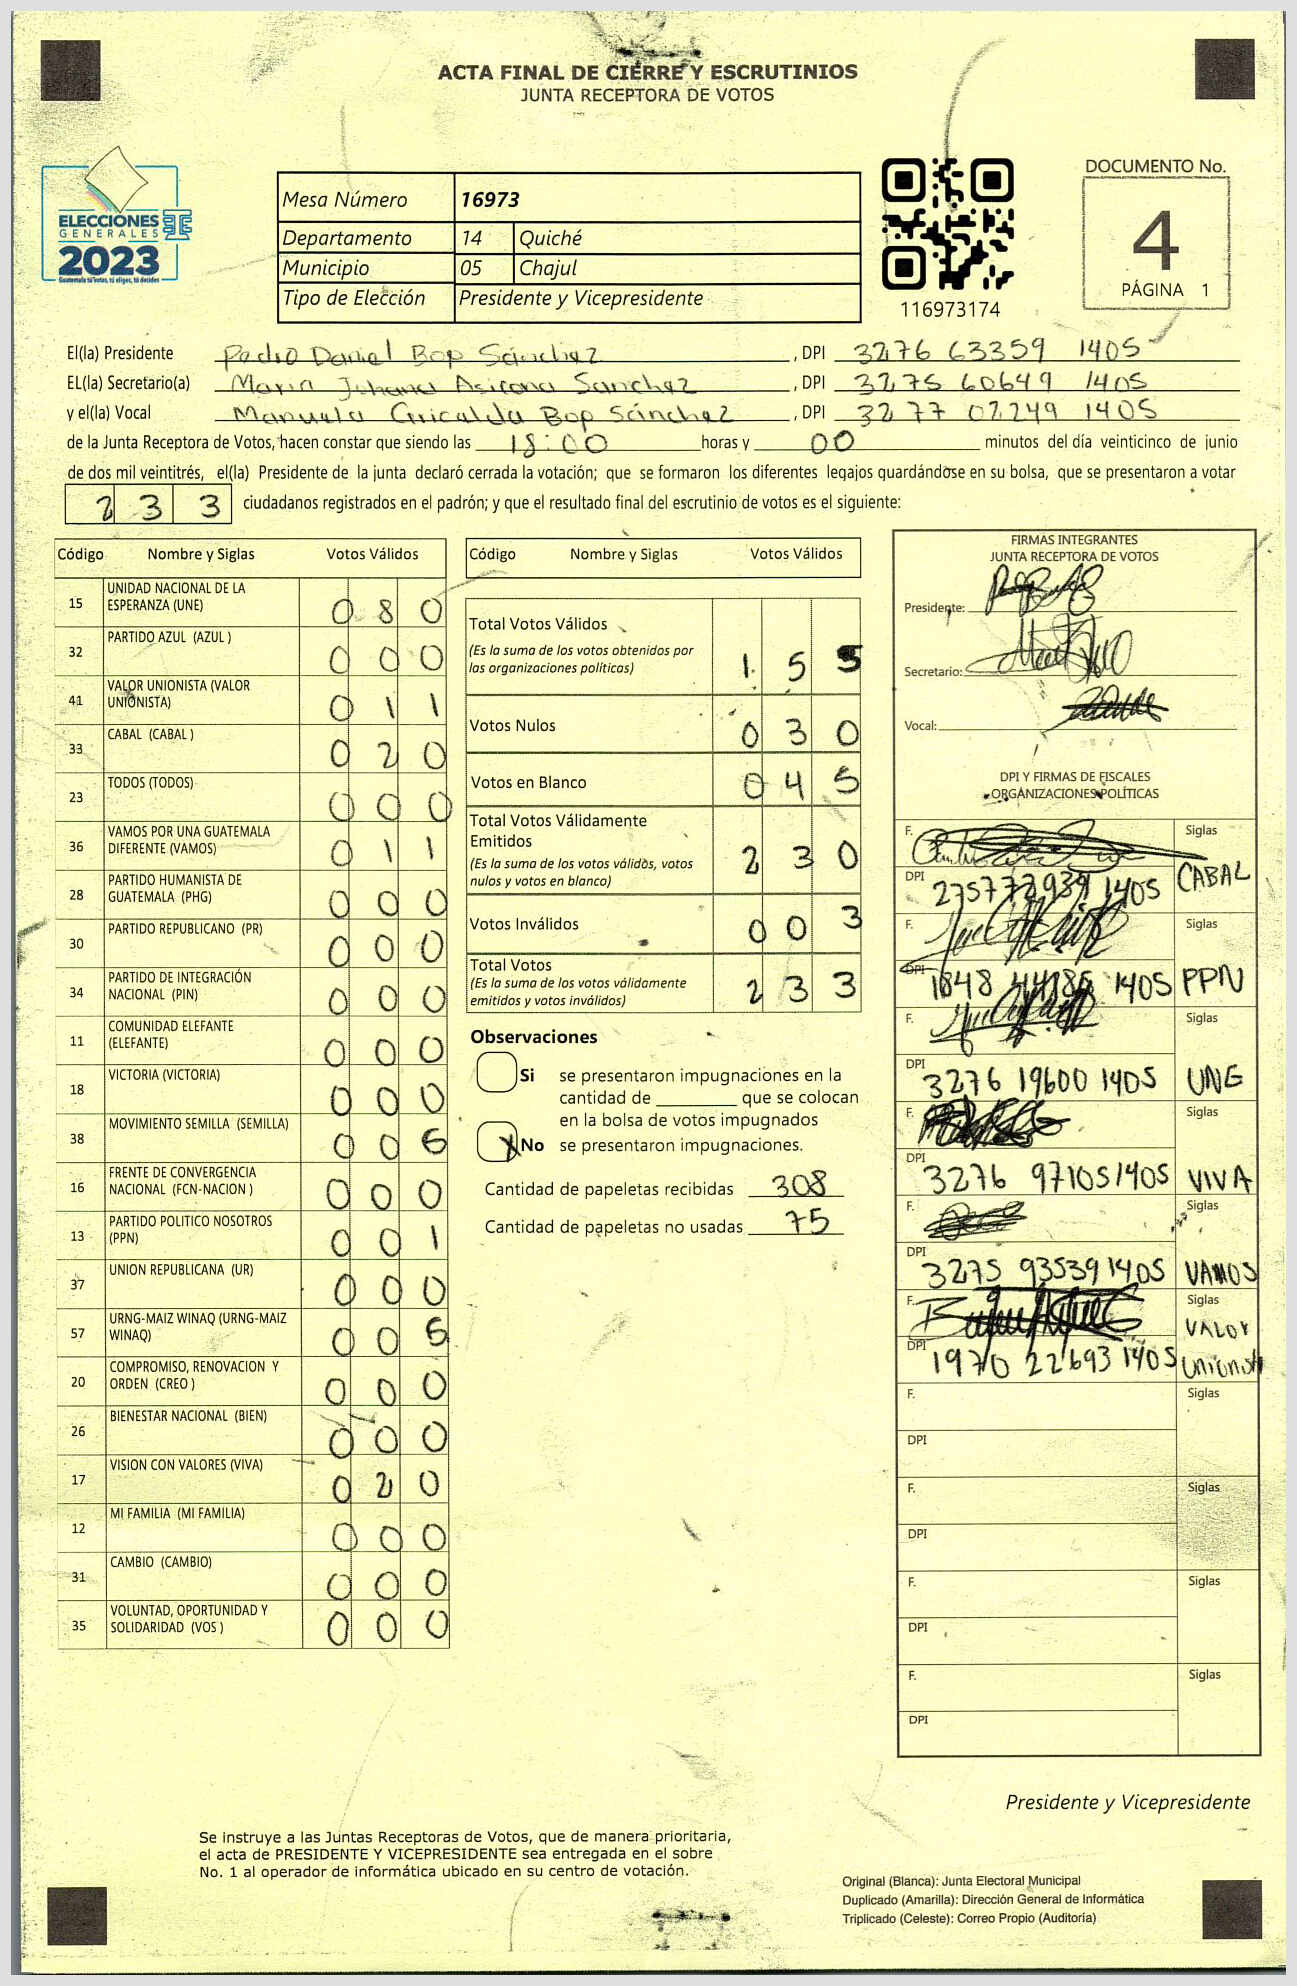 ACTA FINAL DE CIERRE Y ESCRUTINIOS
JUNTA RECEPTORA DE VOTOS
ELECCIONES
GENERALES
2023
Guatemala tú votas, tú eliges, tú decides
Mesa Número 16973
Departamento 14 Quiché
Municipio 05 Chajul
Tipo de Elección Presidente y Vicepresidente
116973174
DOCUMENTO No.
4
PÁGINA 1
El(la) Presidente Pedro Daniel Bop Sánchez, DPI 3276 63359 1405
EL(la) Secretario(a) Maria Juhana Asicona Sanchez, DPI 3275 60649 1405
y el(la) Vocal Manuela Gricelda Bop Sánchez, DPI 3277 02249 1405
de la Junta Receptora de Votos, hacen constar que siendo las 18:00 horas y 00 minutos del día veinticinco de junio
de dos mil veintitrés, el(la) Presidente de la junta declaró cerrada la votación; que se formaron los diferentes legajos guardándose en su bolsa, que se presentaron a votar
233 ciudadanos registrados en el padrón; y que el resultado final del escrutinio de votos es el siguiente:
Código Nombre y Siglas Votos Válidos
15 UNIDAD NACIONAL DE LA ESPERANZA (UNE) 0 8 0
32 PARTIDO AZUL (AZUL ) 0 0 0
41 VALOR UNIONISTA (VALOR UNIONISTA) 0 1 1
33 CABAL (CABAL ) 0 2 0
23 TODOS (TODOS) 0 0 0
36 VAMOS POR UNA GUATEMALA DIFERENTE (VAMOS) 0 1 1
28 PARTIDO HUMANISTA DE GUATEMALA (PHG) 0 0 0
30 PARTIDO REPUBLICANO (PR) 0 0 0
34 PARTIDO DE INTEGRACIÓN NACIONAL (PIN) 0 0 0
11 COMUNIDAD ELEFANTE (ELEFANTE) 0 0 0
18 VICTORIA (VICTORIA) 0 0 0
38 MOVIMIENTO SEMILLA (SEMILLA) 0 0 6
16 FRENTE DE CONVERGENCIA NACIONAL (FCN-NACION ) 0 0 0
13 PARTIDO POLITICO NOSOTROS (PPN) 0 0 1
37 UNION REPUBLICANA (UR) 0 0 0
57 URNG-MAIZ WINAQ (URNG-MAIZ WINAQ) 0 0 6
20 COMPROMISO, RENOVACION Y ORDEN (CREO ) 0 0 0
26 BIENESTAR NACIONAL (BIEN) 0 0 0
17 VISION CON VALORES (VIVA) 0 2 0
12 MI FAMILIA (MI FAMILIA) 0 0 0
31 CAMBIO (CAMBIO) 0 0 0
35 VOLUNTAD, OPORTUNIDAD Y SOLIDARIDAD (VOS ) 0 0 0
Código Nombre y Siglas Votos Válidos
Total Votos Válidos 1 5 5
(Es la suma de los votos obtenidos por
las organizaciones políticas)
Votos Nulos 0 3 0
Votos en Blanco 0 4 5
Total Votos Válidamente
Emitidos 2 3 0
(Es la suma de los votos válidos, votos
nulos y votos en blanco)
Votos Inválidos 0 0 3
Total Votos 2 3 3
(Es la suma de los votos válidamente
emitidos y votos inválidos)
Observaciones
Si se presentaron impugnaciones en la
cantidad de ________ que se colocan
en la bolsa de votos impugnados
X No se presentaron impugnaciones.
Cantidad de papeletas recibidas 308
Cantidad de papeletas no usadas 75
FIRMAS INTEGRANTES
JUNTA RECEPTORA DE VOTOS
Presidente:
Secretario:
Vocal:
DPI Y FIRMAS DE FISCALES
ORGANIZACIONES POLÍTICAS
F. Siglas
DPI 1405 CABAL
F. Siglas
DPI 1848 1405 PPN
F. Siglas
DPI 3276 19600 1405 UNE
F. Siglas
DPI 3276 97105 1405 VIVA
F. Siglas
DPI 3275 93539 1405 VAMOS
F. Siglas
DPI 1970 22693 1405 VALOR Unionist
F. Siglas
DPI
F. Siglas
DPI
F. Siglas
DPI
F. Siglas
DPI
Presidente y Vicepresidente
Se instruye a las Juntas Receptoras de Votos, que de manera prioritaria,
el acta de PRESIDENTE Y VICEPRESIDENTE sea entregada en el sobre
No. 1 al operador de informática ubicado en su centro de votación.
Original (Blanca): Junta Electoral Municipal
Duplicado (Amarilla): Dirección General de Informática
Triplicado (Celeste): Correo Propio (Auditoría)